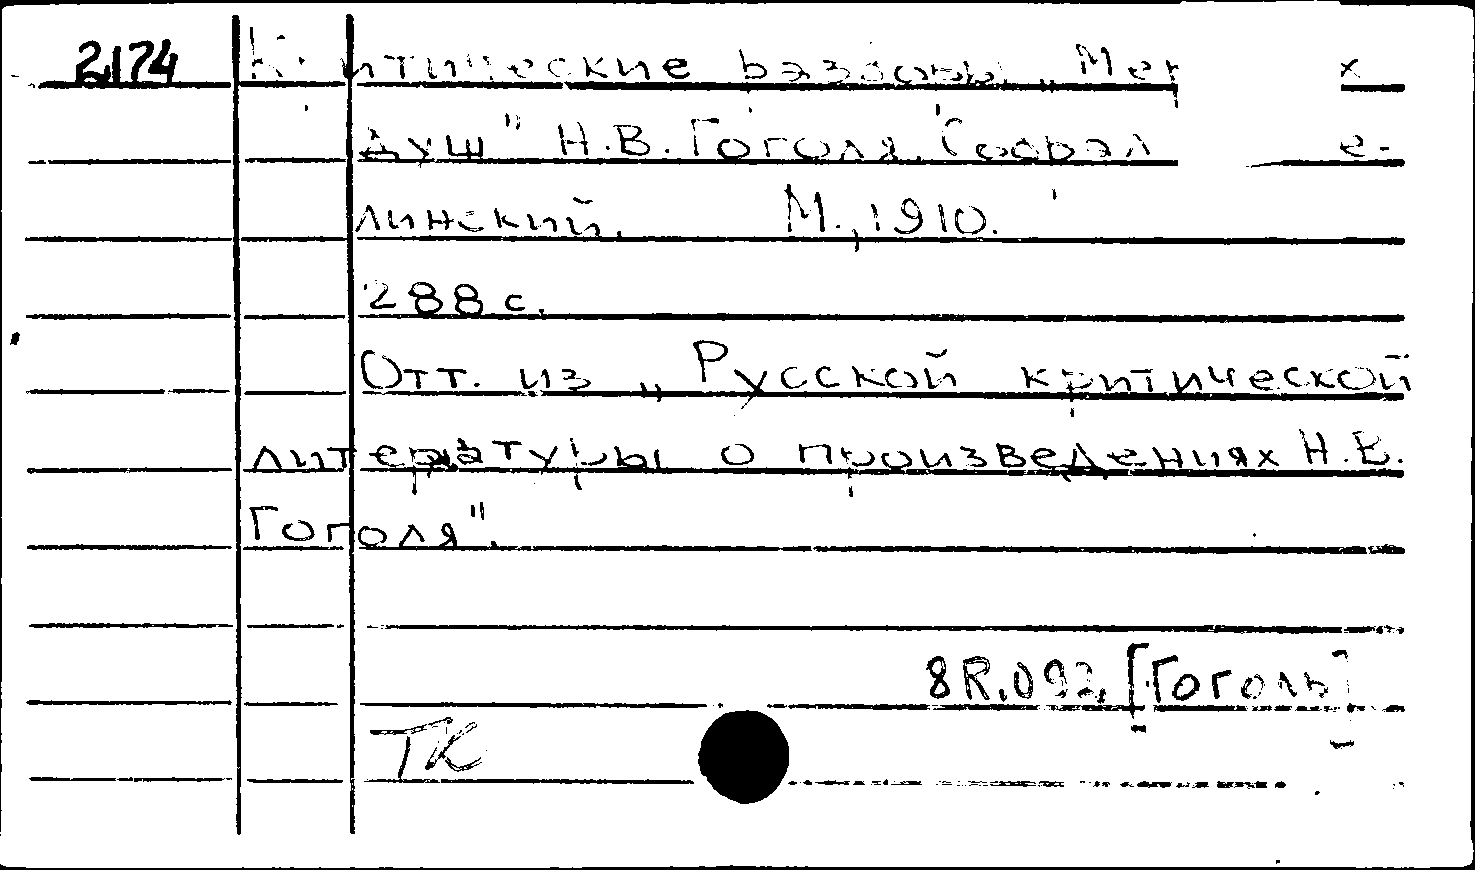 2174 Критические разборы „Мер х
душ" Н.В. Гоголя. Собрал е-
линский. М., 1910.
288 с.
Отт. из „Русской критической
литературы о произведениях Н.В.
Гоголя".
8R.092. [Гоголь]
ТК